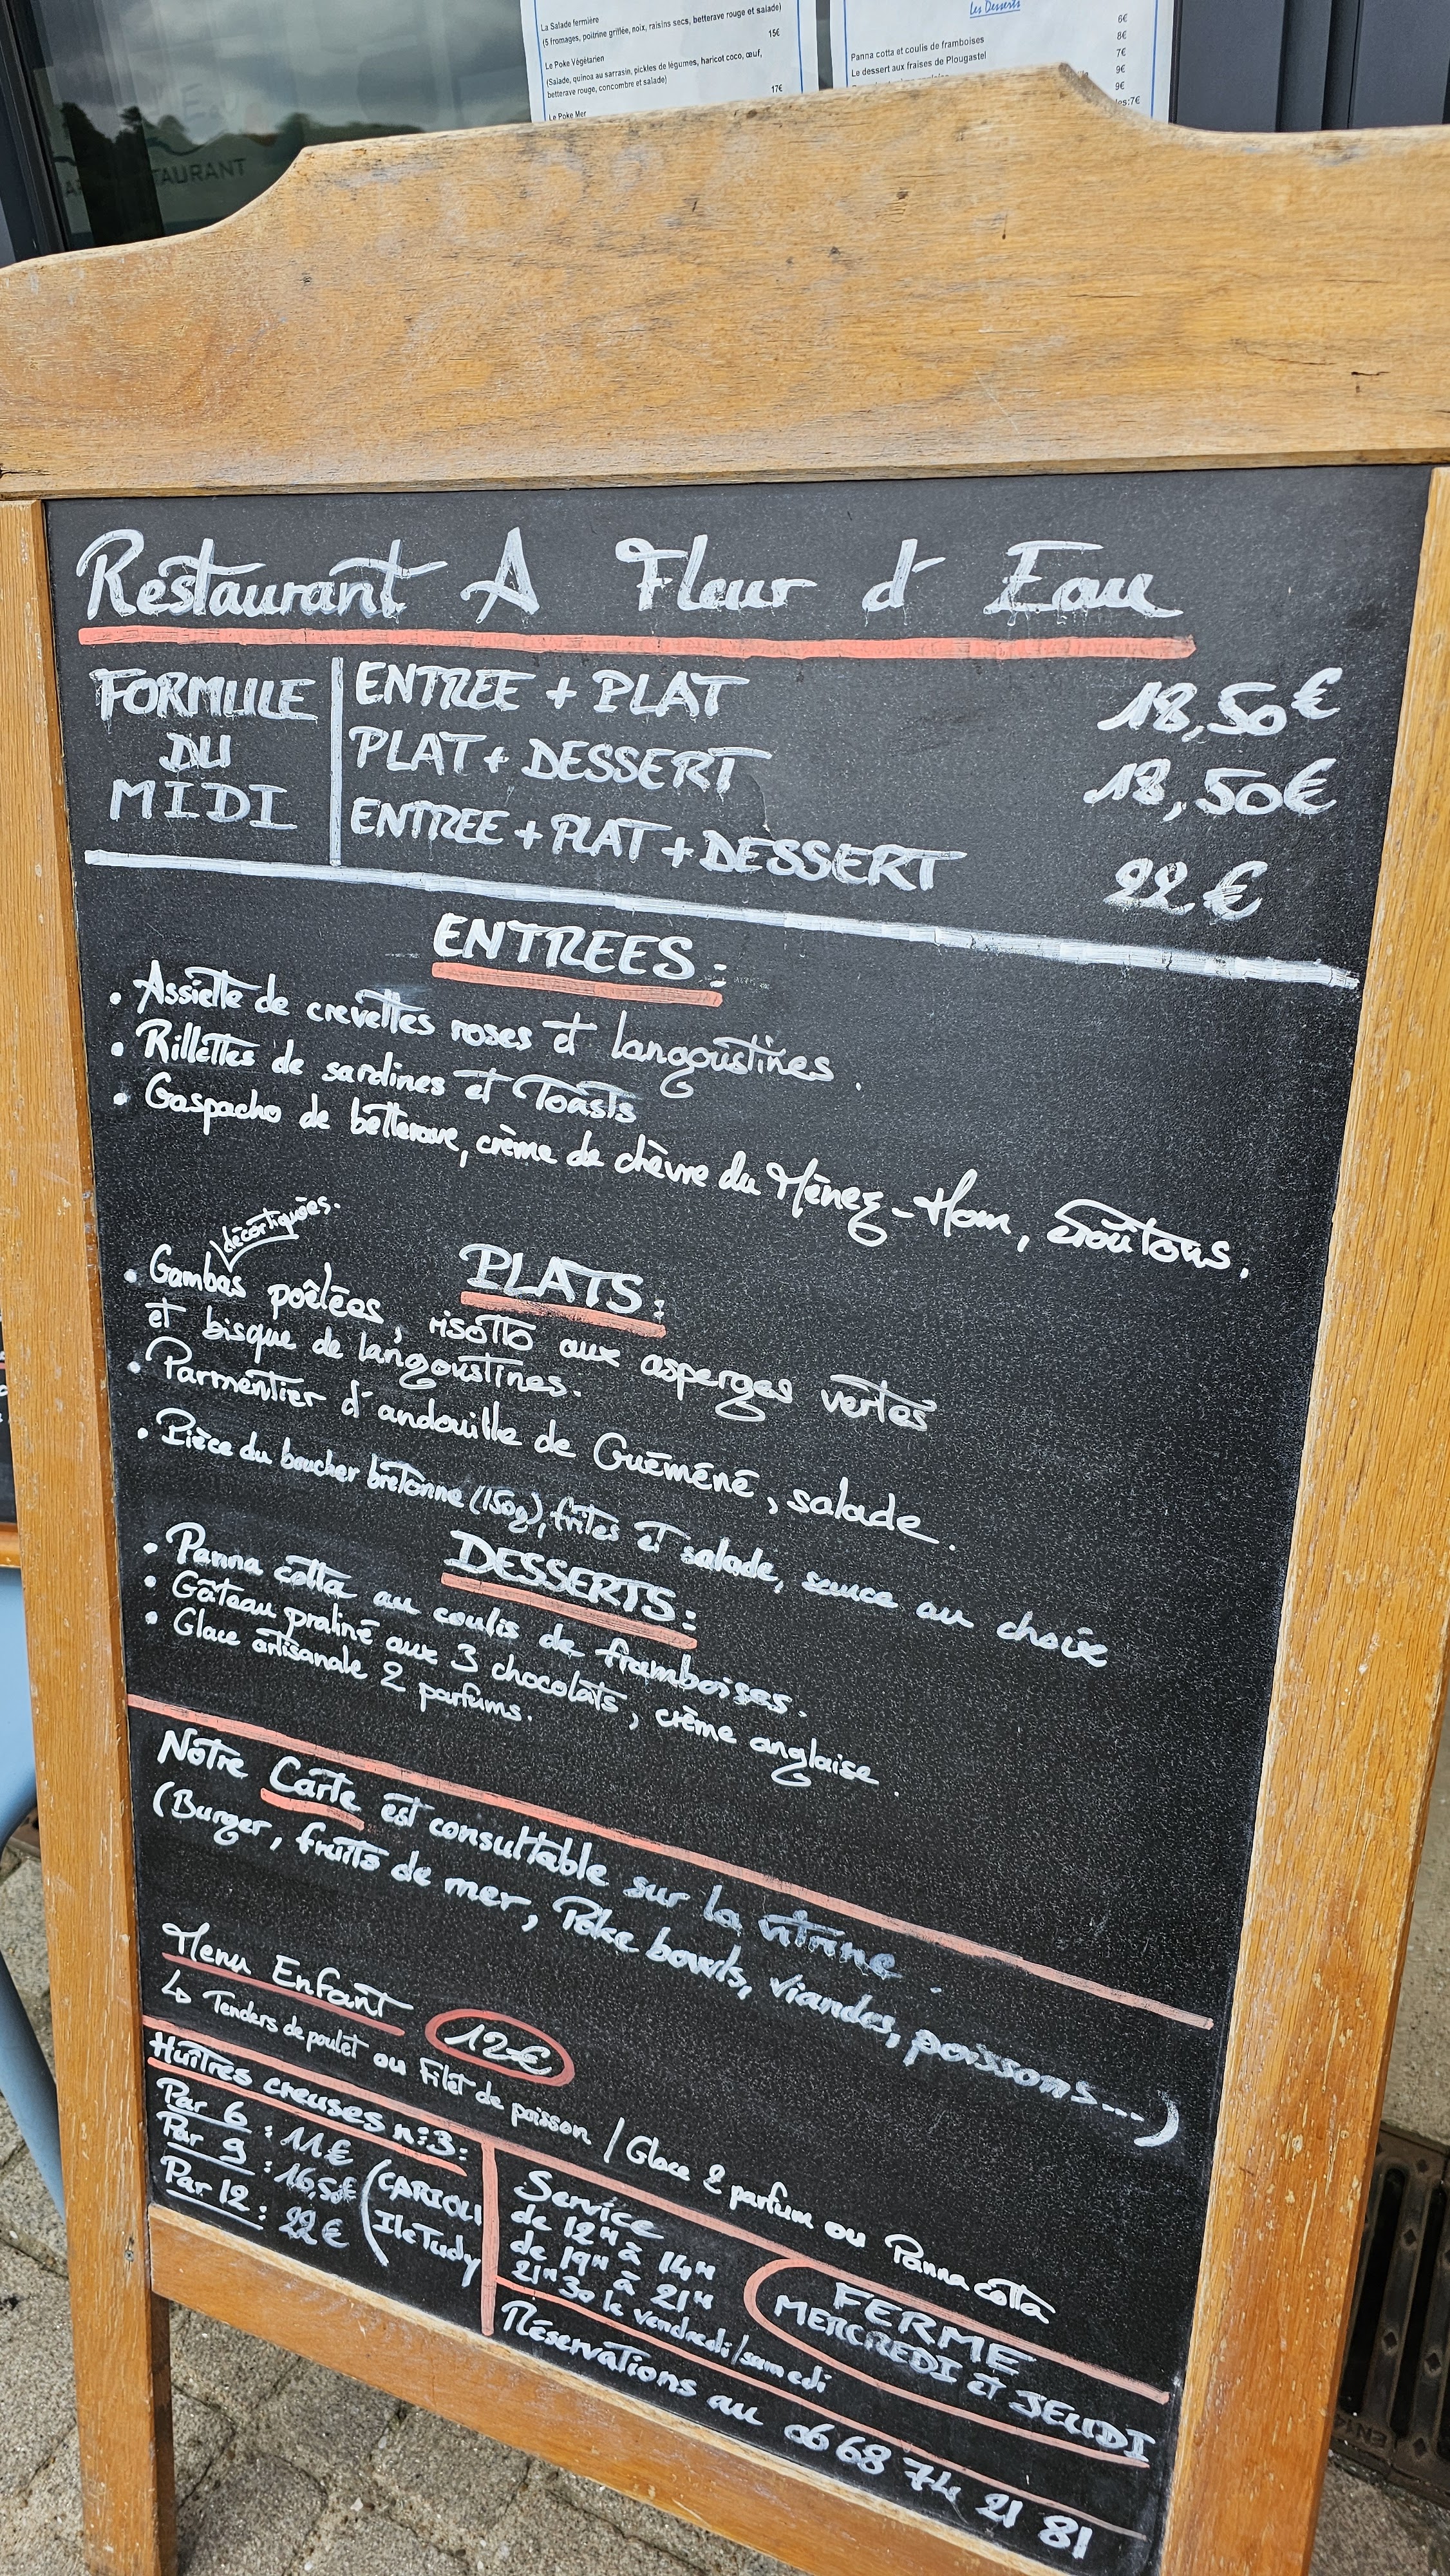 La Salade fermière
(5 fromages, poitrine grillée, noix, raisins secs, betterave rouge et salade)
15€
Le Poke Végétarien
(Salade, quinoa au sarrasin, pickles de légumes, haricot coco, œuf,
betterave rouge, concombre et salade)
17€
Le Poke Mer
Les Desserts
6€
Panna cotta et coulis de framboises 8€
Le dessert aux fraises de Plougastel 7€
9€
9€
7€
RESTAURANT
Restaurant A Fleur d'Eau
FORMULE DU MIDI
ENTREE + PLAT 18,50€
PLAT + DESSERT 18,50€
ENTREE + PLAT + DESSERT 22€
ENTREES :
• Assiette de crevettes roses et langoustines.
• Rillettes de sardines et Toasts
• Gaspacho de betterave, crème de chèvre du Ménez-Hom, croûtons.
PLATS :
• Gambas décortiquées. poêlées, risotto aux asperges vertes
et bisque de langoustines.
• Parmentier d'andouille de Guéméné, salade.
• Pièce du boucher bretonne (150g), frites et salade, sauce au choix
DESSERTS :
• Panna cotta au coulis de framboises.
• Gâteau praliné aux 3 chocolats, crème anglaise
• Glace artisanale 2 parfums.
Notre Carte est consultable sur la vitrine.
(Burger, fruits de mer, Poke bowls, viandes, poissons...)
Menu Enfant 12€
↳ Tenders de poulet ou Filet de poisson / Glace 2 parfum ou Panna cotta
Huîtres creuses n°3:
Par 6 : 11€
Par 9 : 16,50€
Par 12 : 22€
(CARIOU
Ile Tudy
Service
de 12H à 14H
de 19H à 21H
21H30 le vendredi/samedi
FERME
MERCREDI et JEUDI
Réservations au 06 68 74 21 81